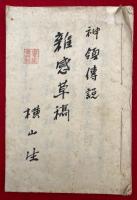 神領傳説
雜感草稿
横山生